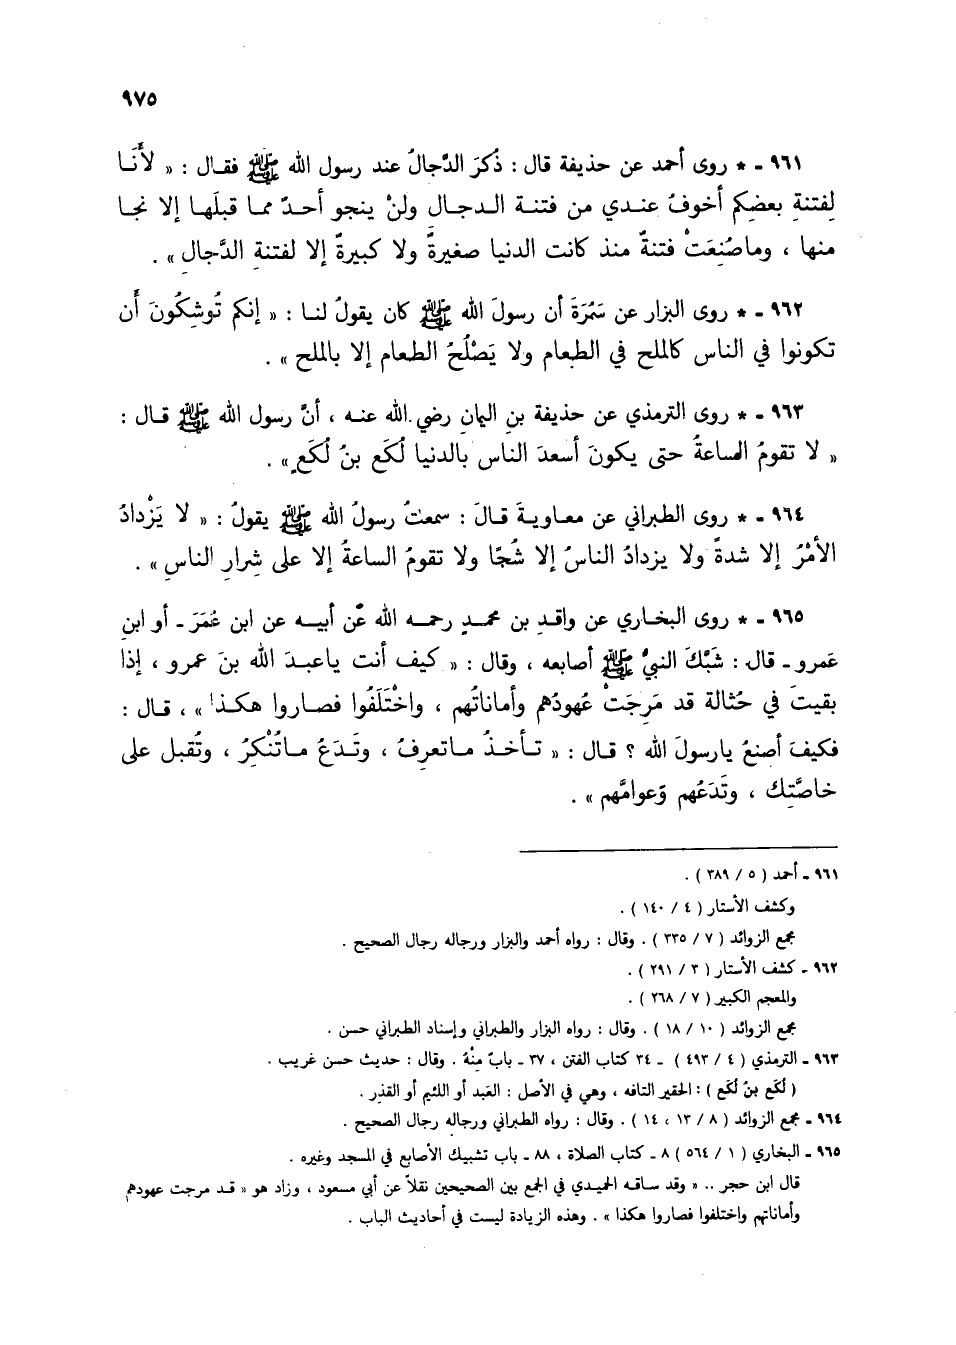 ٩٧٥
٩٦١ ـ * روى أحمد عن حذيفة قال : ذُكرَ الدَّجالُ عند رسول الله ﷺ فقـال : « لأَنَـا
لِفتنةِ بعضِكم أخوفُ عنـدي من فتنـة الـدجـالِ ولنْ ينجو أحـدٌ ممـا قبلَهـا إلا نجـا
منها ، وماصُنِعَتْ فتنةٌ منذ كانت الدنيا صغيرةٌ ولا كبيرةٌ إلا لفتنةِ الدَّجالِ » .
٩٦٢ ـ * روى البزار عن سَمُرَةَ أن رسولَ الله ﷺ كان يقولُ لنـا : « إنكم تُوشِكُونَ أَن
تكونوا في الناس كالملح في الطعام ولا يَصْلُحُ الطعام إلا بالملح » .
٩٦٣ ـ * روى الترمذي عن حذيفة بنِ اليمانِ رضي الله عنـه ، أنَّ رسول الله ﷺ قـال :
« لا تقومُ الساعةُ حتى يكونَ أسعدَ الناس بالدنيا لُكَع بنُ لُكَعٍ » .
٩٦٤ ـ * روى الطبراني عن معـاويـةَ قـالَ : سمعتُ رسولُ الله ﷺ يقولُ : « لا يَزْدادُ
الأمْرُ إلا شدةً ولا يزدادُ الناسُ إلا شُحًا ولا تقومُ الساعةُ إلا على شِرارِ الناسِ » .
٩٦٥ ـ * روى البخـاري عن واقـدِ بن محمـدٍ رحمـه الله عَن أبيـه عن ابن عُمَرَ ـ أو ابنِ
عَمرو ـ قال : شَبَّكَ النبيُّ ﷺ أصابعه ، وقال : « كيف أنت ياعبـدَ الله بنَ عمرو ، إذا
بقيتَ في حُثالة قد مَرِجَتْ عُهودُهم وأماناتُهم ، واخْتَلَفُوا فصـاروا هكـذا » ، قـال :
فكيفَ أصنعُ يارسولَ الله ؟ قـال : « تـأخـذُ مـاتعرفُ ، وتَـدَعُ مـاتُنْكِرُ ، وتُقبل على
خاصَّتِك ، وتَدَعُهم وَعوامَّهم » .
٩٦١ ـ أحمد ( ٥ / ٣٨٩ ) .
وكشف الأستار ( ٤ / ١٤٠ ) .
مجمع الزوائد ( ٧ / ٣٣٥ ) . وقال : رواه أحمد والبزار ورجاله رجال الصحيح .
٩٦٢ ـ كشف الأستار ( ٣ / ٢٩١ ) .
والمعجم الكبير ( ٧ / ٢٦٨ ) .
مجمع الزوائد ( ١٠ / ١٨ ) . وقال : رواه البزار والطبراني وإسناد الطبراني حسن .
٩٦٣ ـ الترمذي ( ٤ / ٤٩٣ ) ـ ٣٤ كتاب الفتن ، ٣٧ ـ بابٌ مِنْهُ . وقال : حديث حسن غريب .
( لُكَع بنُ لُكَع ) : الحقير التافه ، وهي في الأصل : العَبد أو اللئيم أو القذر .
٩٦٤ ـ مجمع الزوائد ( ٨ / ١٣ ، ١٤ ) . وقال : رواه الطبراني ورجاله رجال الصحيح .
٩٦٥ ـ البخاري ( ١ / ٥٦٤ ) ٨ ـ كتاب الصلاة ، ٨٨ ـ باب تشبيك الأصابع في المسجد وغيره .
قال ابن حجر .. « وقد ساقـه الحميدي في الجمع بين الصحيحين نقلاً عن أبي مسعود ، وزاد هو « قـد مرجت عهودهم
وأماناتهم واختلفوا فصاروا هكذا » . وهذه الزيادة ليست في أحاديث الباب .